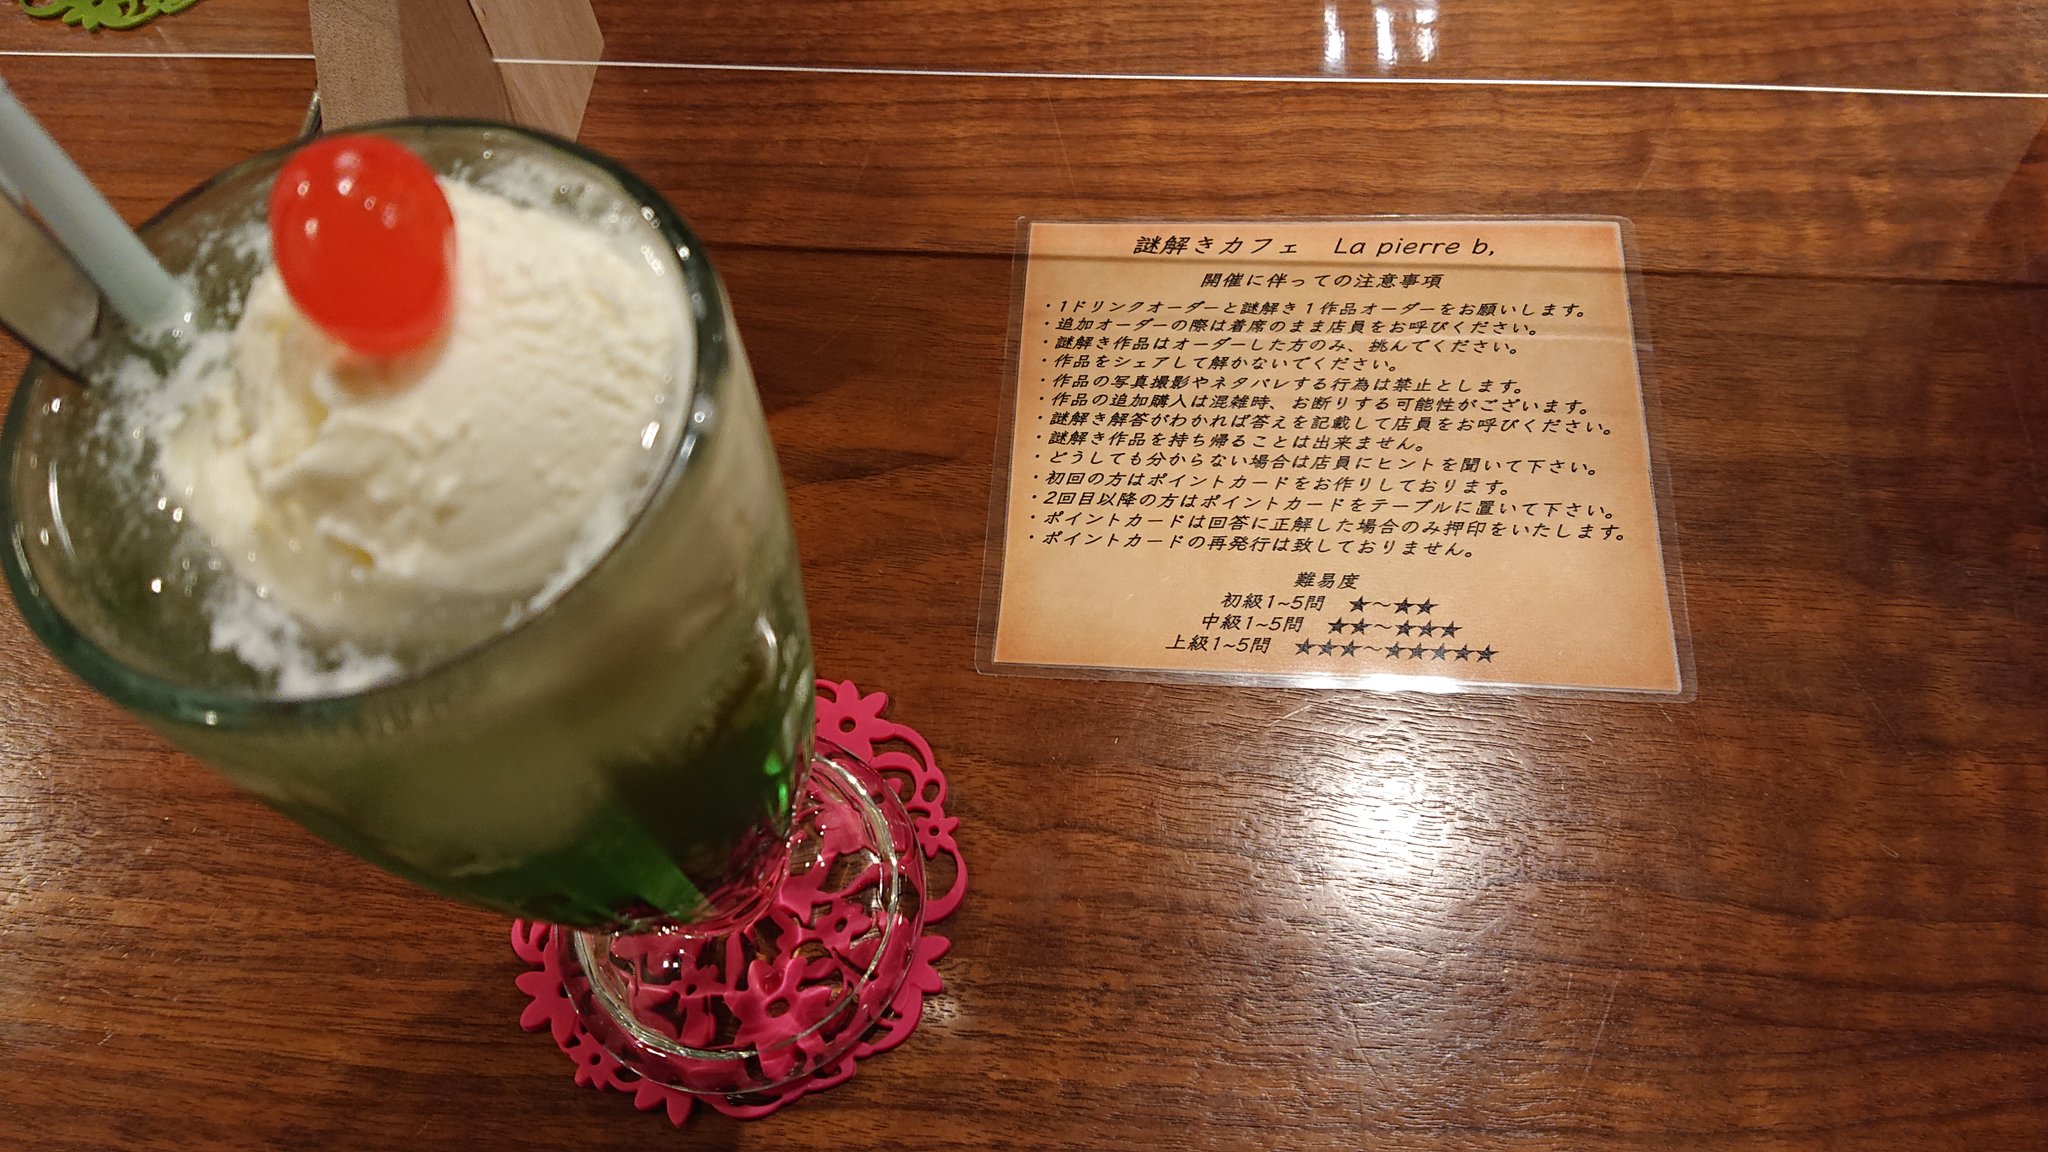 謎解きカフェ　La pierre b,
開催に伴っての注意事項
・1ドリンクオーダーと謎解き1作品オーダーをお願いします。
・追加オーダーの際は着席のまま店員をお呼びください。
・謎解き作品はオーダーした方のみ、挑んでください。
・作品をシェアして解かないでください。
・作品の写真撮影やネタバレする行為は禁止とします。
・作品の追加購入は混雑時、お断りする可能性がございます。
・謎解き解答がわかれば答えを記載して店員をお呼びください。
・謎解き作品を持ち帰ることは出来ません。
・どうしても分からない場合は店員にヒントを聞いて下さい。
・初回の方はポイントカードをお作りしております。
・2回目以降の方はポイントカードをテーブルに置いて下さい。
・ポイントカードは回答に正解した場合のみ押印をいたします。
・ポイントカードの再発行は致しておりません。
難易度
初級1~5問　★～★★
中級1~5問　★★～★★★
上級1~5問　★★★～★★★★★